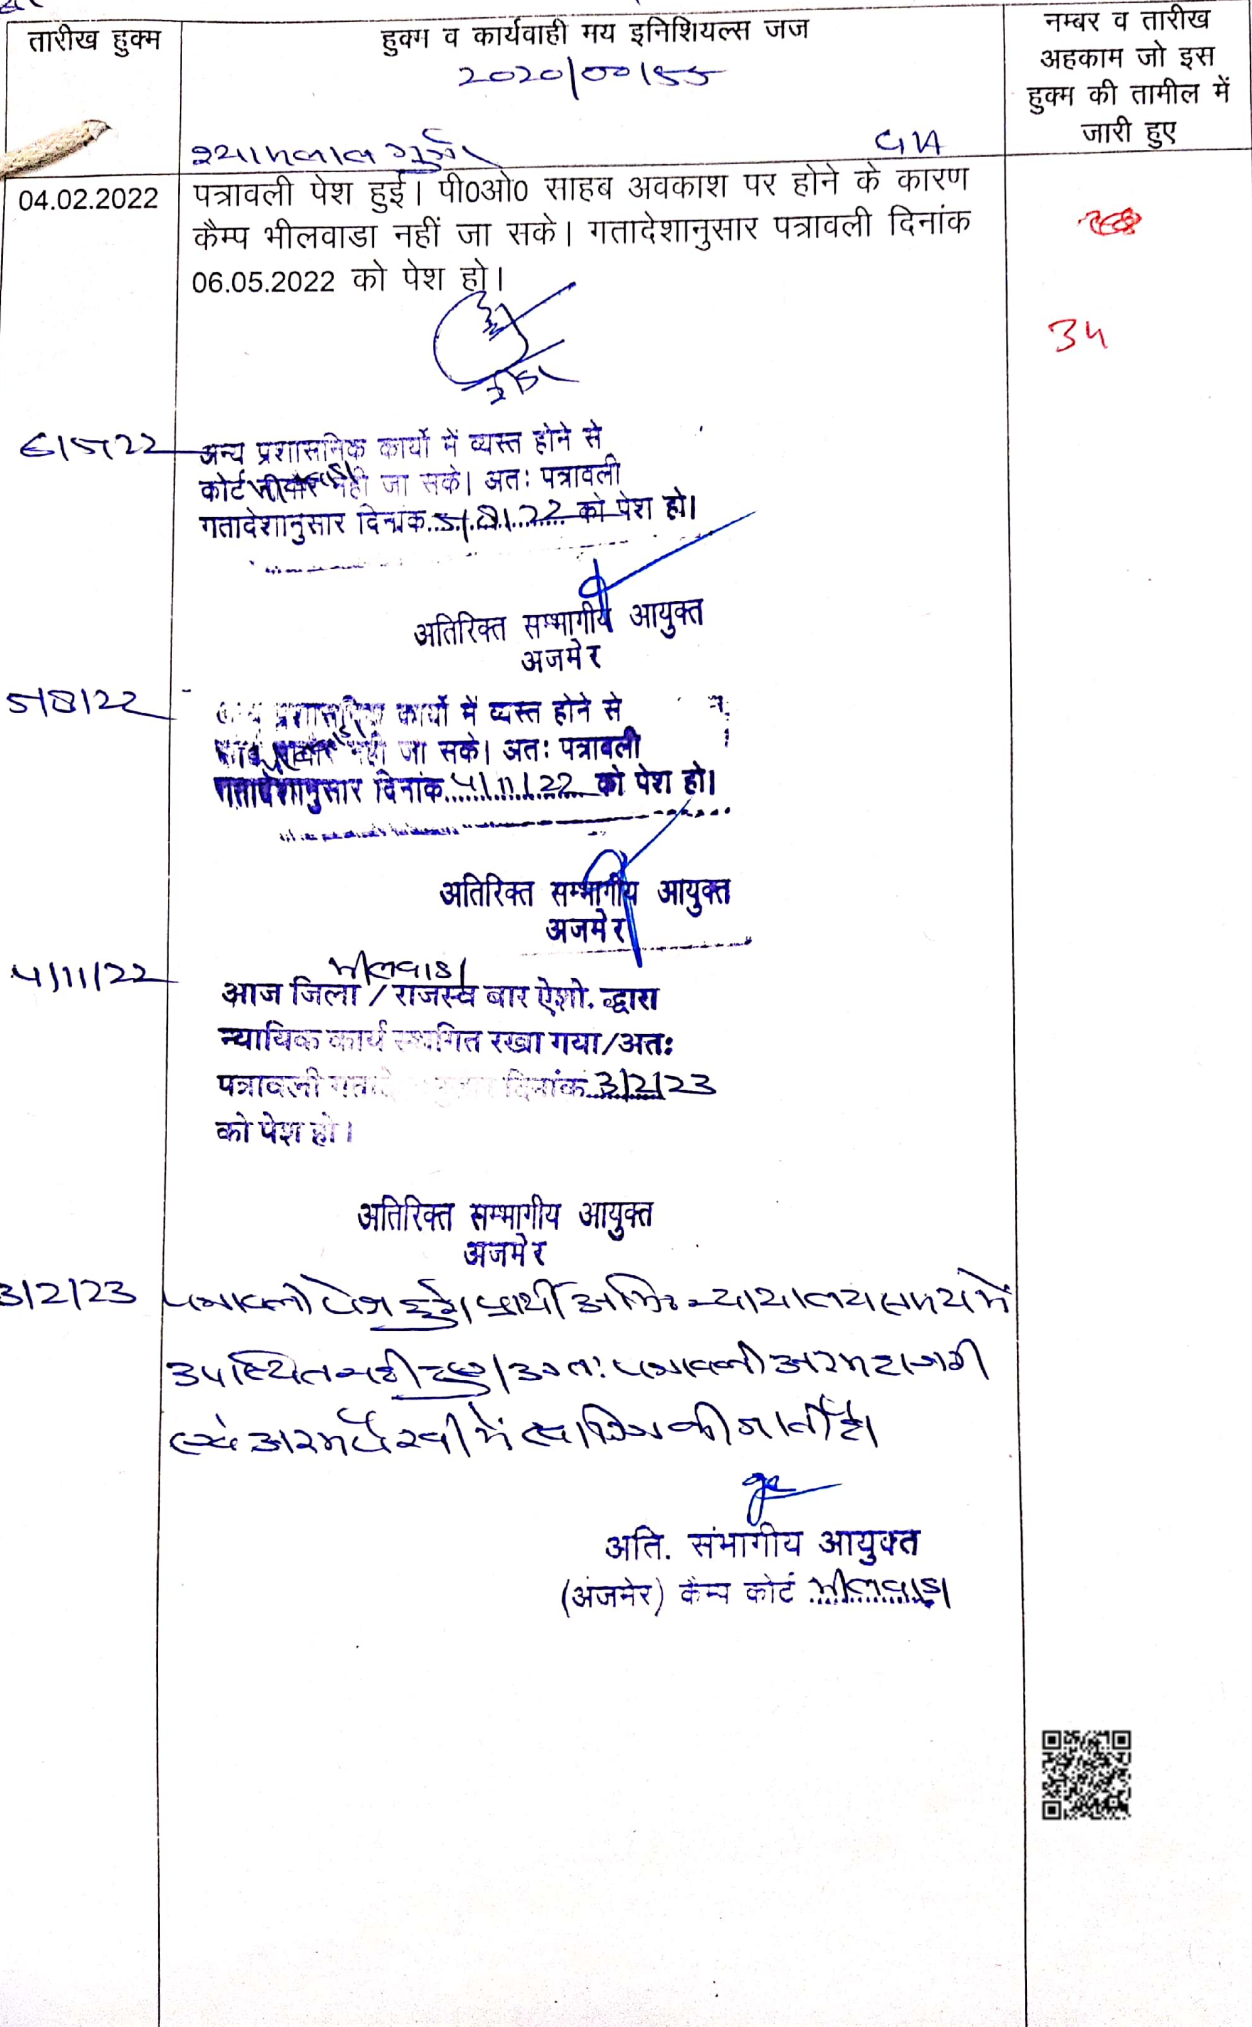 तारीख हुक्म
हुक्म व कार्यवाही मय इनिशियल्स जज
नम्बर व तारीख
अहकाम जो इस
हुक्म की तामील में
जारी हुए
2020/00155
श्यामलाल गुर्जर
04.02.2022
पत्रावली पेश हुई। पी0ओ0 साहब अवकाश पर होने के कारण
कैम्प भीलवाडा नहीं जा सके। गतादेशानुसार पत्रावली दिनांक
06.05.2022 को पेश हो।
34
6/5/22
अन्य प्रशासनिक कार्यो में व्यस्त होने से
कोर्ट नही जा सके। अतः पत्रावली
गतादेशानुसार दिनांक 5/8/22 को पेश हो।
अतिरिक्त सम्भागीय आयुक्त
अजमेर
5/8/22
अन्य प्रशासनिक कार्यो में व्यस्त होने से
नही जा सके। अतः पत्रावली
गतादेशानुसार दिनांक 4/11/22 को पेश हो।
अतिरिक्त सम्भागीय आयुक्त
अजमेर
4/11/22
भीलवाडा
आज जिला / राजस्व बार ऐशो. द्धारा
न्यायिक कार्य स्थगित रखा गया/अतः
पत्रावली गतादेशानुसार दिनांक 3/2/23
को पेश हो।
अतिरिक्त सम्भागीय आयुक्त
अजमेर
3/2/23
पत्रावली पेश हुई। प्रार्थी अभि० न्यायालय समय में
उपस्थित नही हुए। अतः पत्रावली अदम हाजरी
एवं अदम पैरवी में खारिज की जाती है।
अति. संभागीय आयुक्त
(अजमेर) कैम्प कोर्ट भीलवाडा